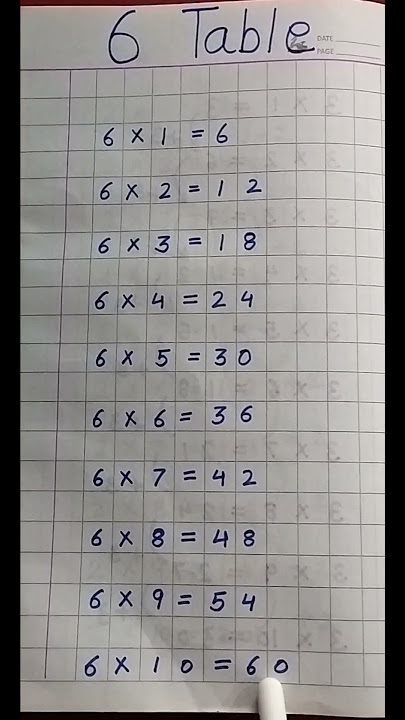 6 Table
DATE
PAGE
6 × 1 = 6
6 × 2 = 12
6 × 3 = 18
6 × 4 = 24
6 × 5 = 30
6 × 6 = 36
6 × 7 = 42
6 × 8 = 48
6 × 9 = 54
6 × 10 = 60